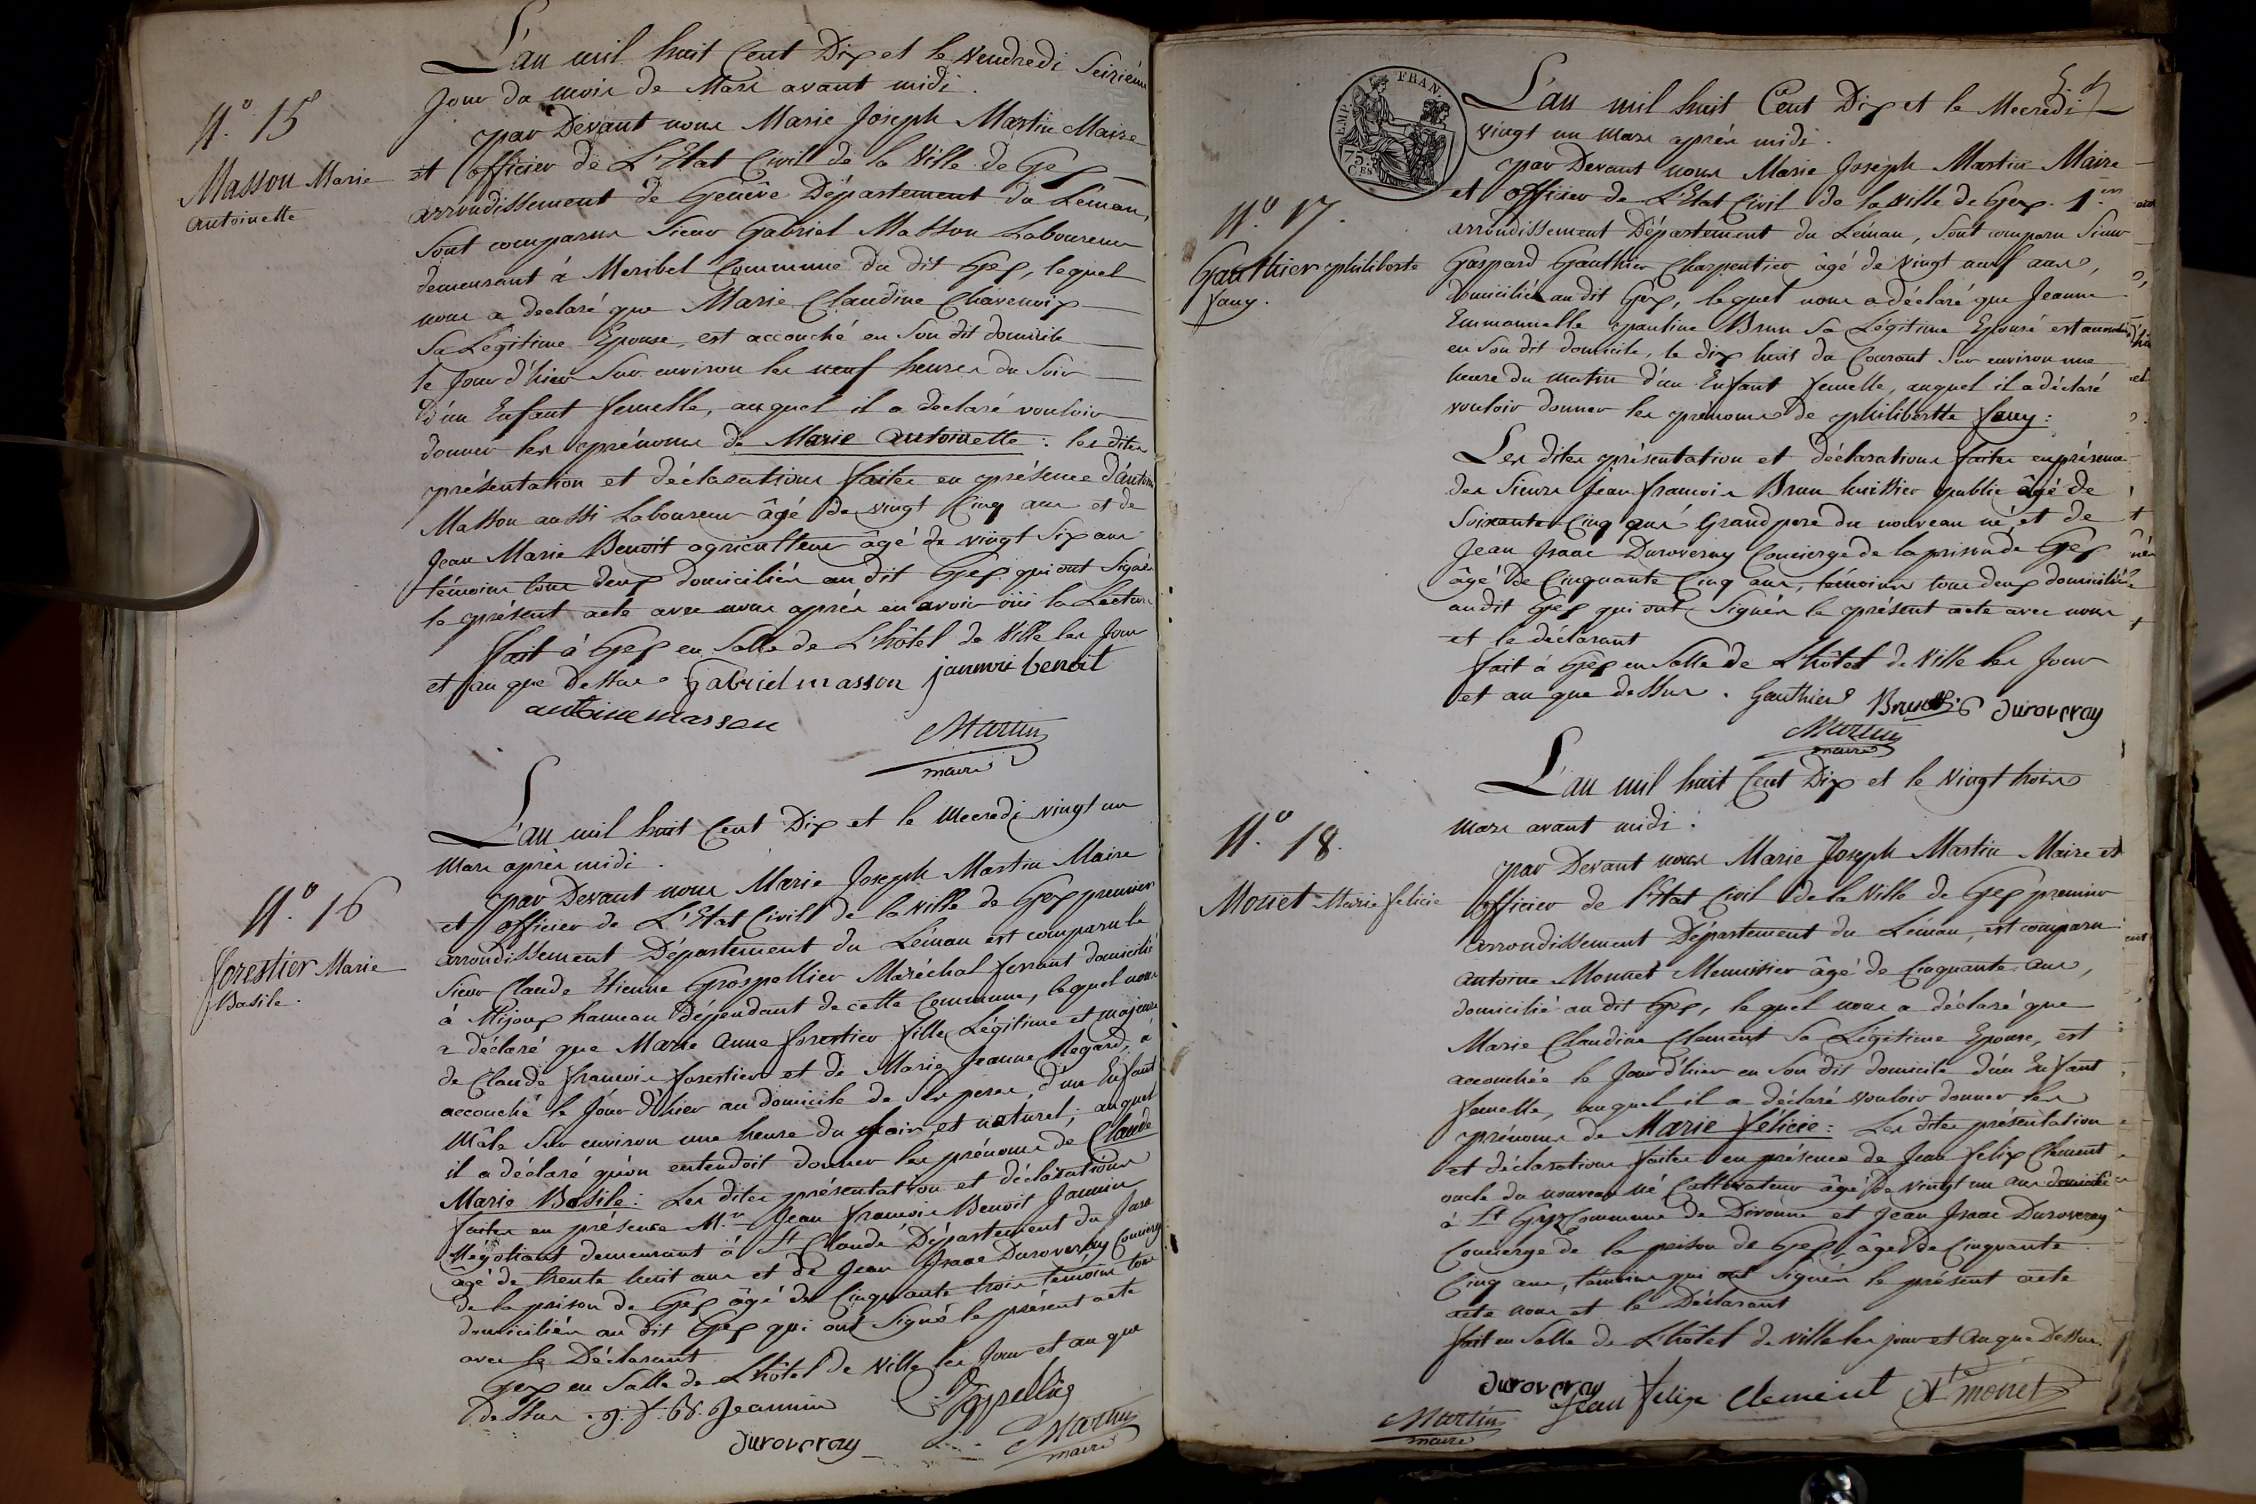 L'an mil huit Cent Dix et le Vendredi Seizième
Jour du mois de Mars avant midi.
N.º 15
par Devant nous Marie Joseph Martin Maire
et officier de L'Etat Civil de la Ville de Gex
Masson Marie
antoinette
arrondissement de Genève Département du Léman,
Sont comparus Sieur Gabriel Masson Laboureur
demeurant à Maribel Commune du dit Gex, lequel
nous a declaré que Marie Claudine Chavenoix
Sa Légitime Epouse, est accouché en Son dit domicile
le Jour d'hier Sur environ les neuf heures du Soir
D'un Enfant femelle, auquel il a declaré vouloir
donner les prénoms de Marie antoinette : les dites
présentation et déclarations faites en présence d'antoine
Masson aussi Laboureur âgé de vingt Cinq ans et de
Jean Marie Benoit agriculteur âgé de vingt Six ans
témoins tous deux domiciliés au dit Gex qui ont Signés
le présent acte avec nous après en avoir oüi la Lecture
fait à Gex en Salle de L'hôtel de Ville les Jour
et an que Dessus. Gabriel masson janmri benoit
antoine masson
Martin
maire
L'an mil huit Cent Dix et le Mecredi vingt un
Mars après midi.
N.º 16
par Devant nous Marie Joseph Martin Maire
et officier de L'Etat Civil de la Ville de Gex premier
forestier Marie
Basile.
arrondissement Département du Léman est comparu le
Sieur Claude Etienne Grospellier Maréchal ferrant domicilié
à Mijoux hameau dépendant de cette Commune, lequel nous
a déclaré que Marie Anne forestier fille Légitime et majeure
de Claude françois forestier et de Marie Jeanne Regard, a
accouché le Jour d'hier au domicile de Ses peres, d'un Enfant
Mâle Sur environ une heure du Soir et naturel ; auquel
il a déclaré qu'on entendoit donner les prénoms de Claude
Marie Basile : Les dites présentation et déclarations
faites en présence M.r Jean françois Benoit Jannin
Négotiant demeurant à St Claude Département du Jura
âgé de trente huit ans et de Jean Isaac Duroveray Concierge
de la prison de Gex âgé de Cinquante trois témoins tous
domiciliés au dit Gex qui ont Signé le présent acte
avec le Déclarant
Gex en Salle de L'hôtel de Ville les Jour et an que
Dessus. Jeannin
Duroveray
Martin
maire
EMP. FRAN.
75
CES
L'an mil huit Cent Dix et le Mecredi
vingt un Mars après midi.
par Devant nous Marie Joseph Martin Maire
et officier de L'Etat Civil de la Ville de Gex. 1.er
N.º 17.
arrondissement Département du Léman, Sont comparu Sieur
Gauthier philiberte
fany.
Gaspard Gauthier Charpentier âgé de Vingt neuf ans,
domiciliés au dit Gex, lequel nous a déclaré que Jeanne
Emmanuelle pauline Brun Sa Légitime Epouse est accouchée
en Son dit domicile, le dix huit du Courant Sur environ une
heure du matin d'un Enfant femelle, auquel il a déclaré
vouloir donner les prénoms de philibertte fany :
Les dites présentation et déclarations faites en présence
des Sieurs Jean françois Brun huissier public âgé de
Soixante Cinq ans Grand pere du nouveau né, et de
Jean Isaac Duroveray Concierge de la prison de Gex
âgé de Cinquante Cinq ans, témoins tous deux domiciliés
au dit Gex qui ont Signés le présent acte avec nous
et le déclarant
fait à Gex en Salle de L'hôtel de Ville les Jour
et an que dessus. Gauthier Brun Duroveray
Martin
maire
L'an mil huit Cent Dix et le Vingt trois
Mars avant midi :
N.º 18.
par Devant nous Marie Joseph Martin Maire et
Monet Marie felicie
officier de l'Etat Civil de la Ville de Gex premier
arrondissement Département du Léman, est comparu
antoine Monnet Menuisier âgé de Cinquante ans,
domicilié au dit Gex, lequel nous a déclaré que
Marie Claudine Clement Sa Légitime Epouse, est
accouchée le Jour d'hier en Son dit domicile d'un Enfant
femelle, auquel il a déclaré vouloir donner les
prénoms de Marie félicie : Les dites présentation
et déclarations faites en présence de Jean felix Clement
oncle du nouveau né Cultivateur âgé de vingt un ans domicilié
à St Gyx Commune de Divonne et Jean Isaac Duroveray
Concierge de la prison de Gex, âgé de Cinquante
Cinq ans, témoins qui ont Signés le présent acte
acte nous et le Déclarant
fait en Salle de L'hôtel de Ville les jour et an que Dessus.
Duroveray Jean felix Clement Ate monet
Martin
maire